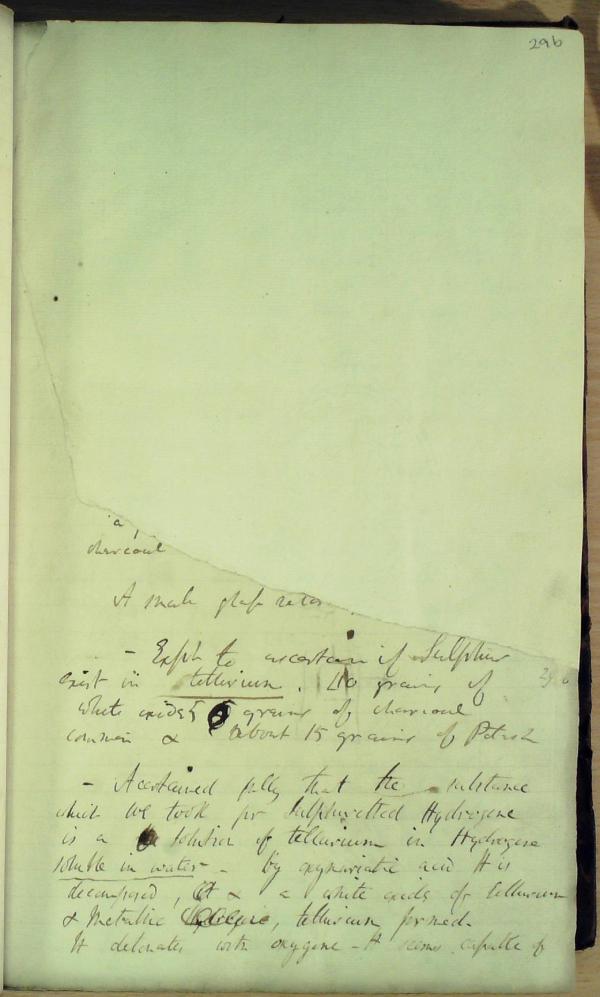 29b
a,
charcoal
A small glass retor
- Expt to ascertain if Sulphur
exist in tellurium. 40 grains of
white oxide 5 grains of charcoal
common & about 15 grains of Potash
- Ascertained fully that the substance
which we took for Sulphuretted Hydrogene
is a solution of tellurium in Hydrogene
soluble in water - by oxymuriatic acid It is
decomposed, & a white oxide of tellurium
& Metallic tellurium formed.
It detonates with oxygene - It seems capable of